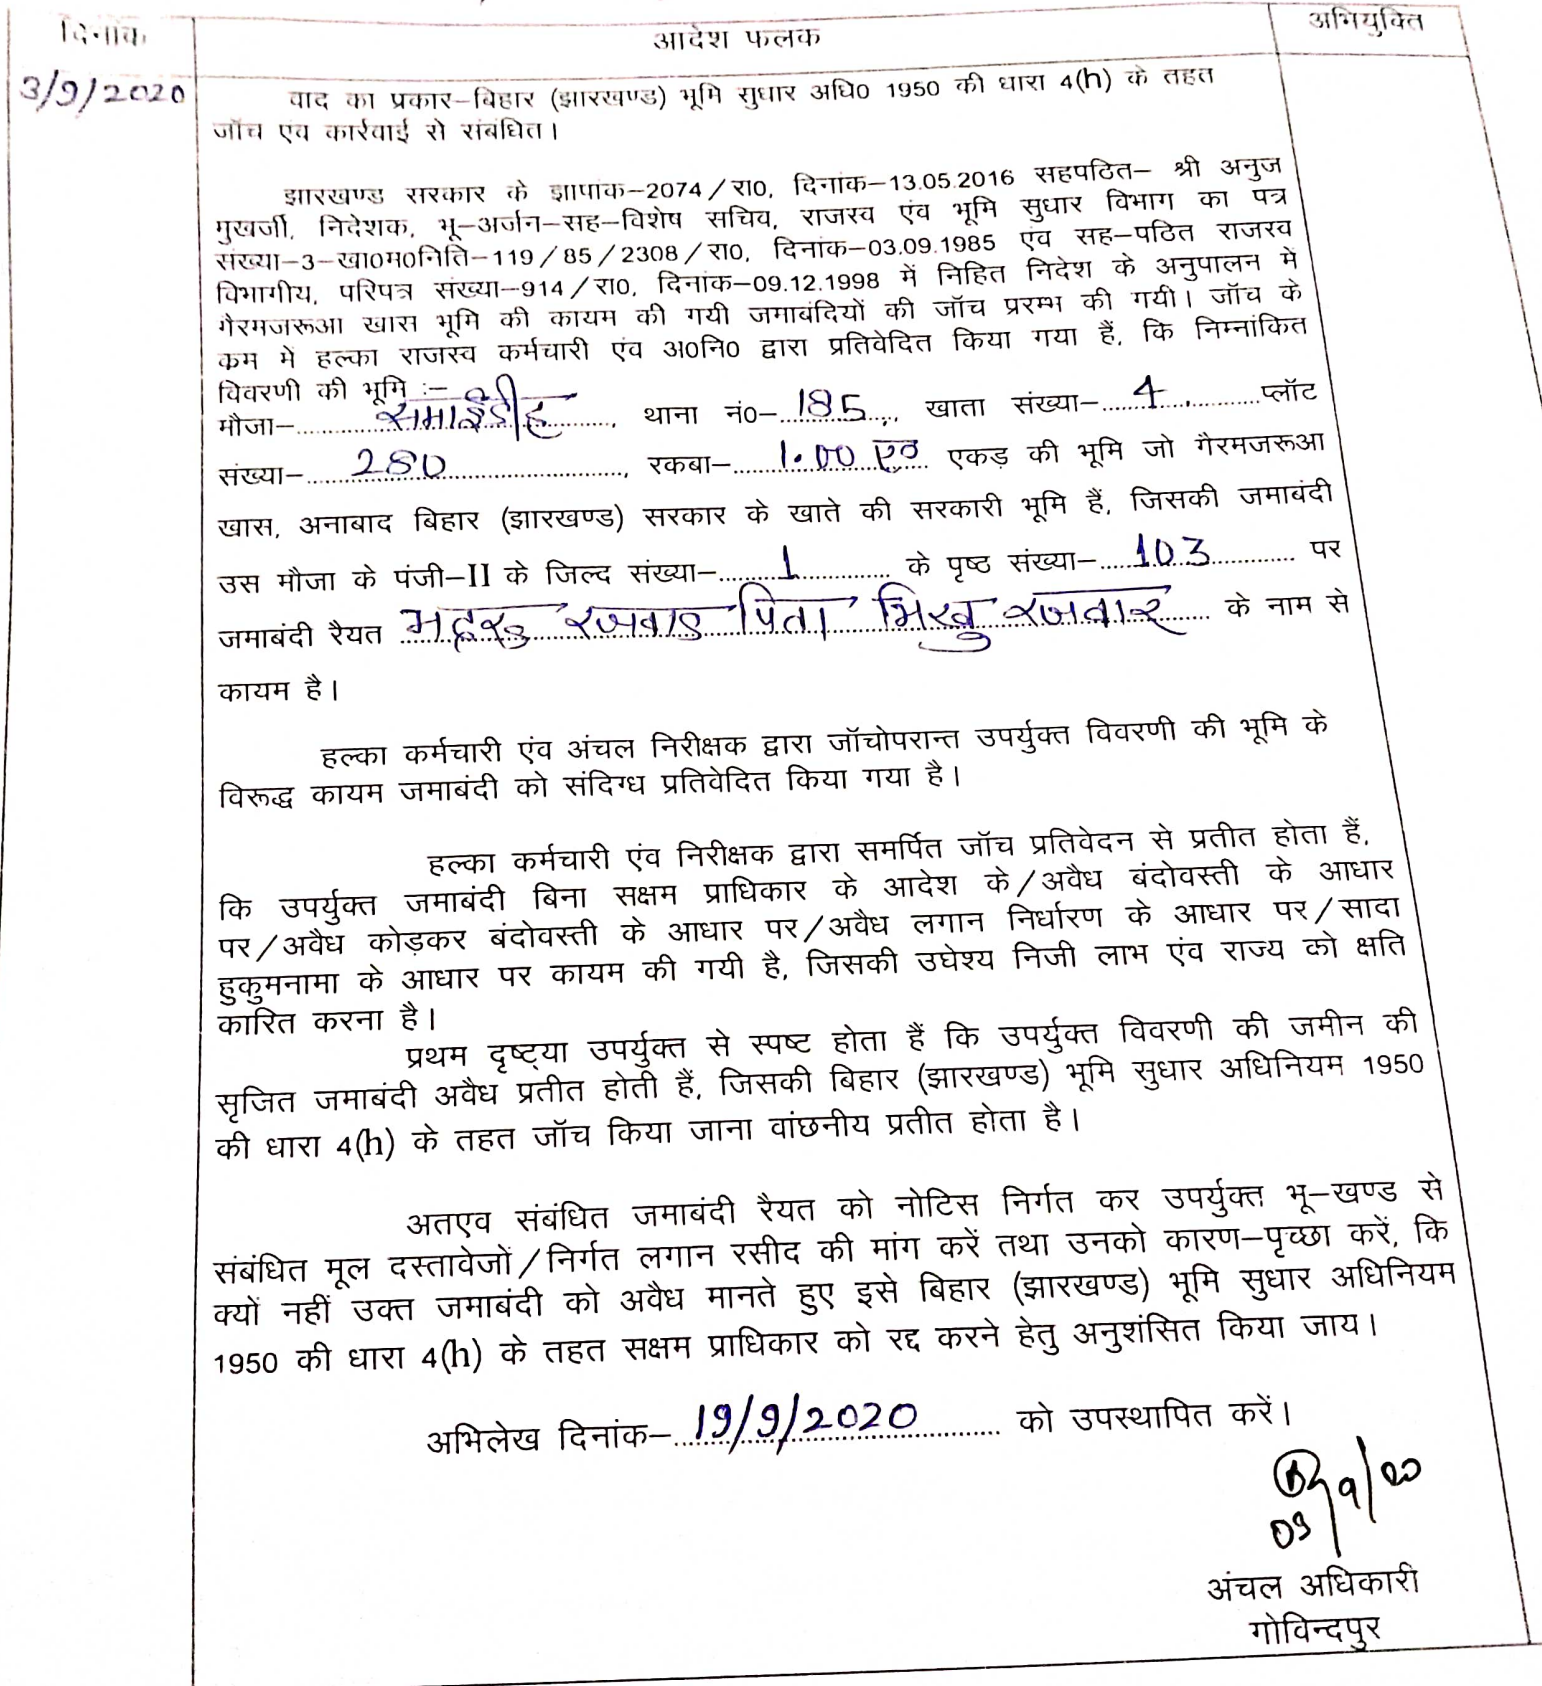 दिनांक
आदेश फलक
अभियुक्ति
3/9/2020
वाद का प्रकार–बिहार (झारखण्ड) भूमि सुधार अधि0 1950 की धारा 4(h) के तहत
जॉच एंव कार्रवाई से संबंधित।
झारखण्ड सरकार के ज्ञापांक–2074/रा0, दिनांक–13.05.2016 सहपठित– श्री अनुज
मुखर्जी, निदेशक, भू–अर्जन–सह–विशेष सचिव, राजस्व एंव भूमि सुधार विभाग का पत्र
संख्या–3–खा0म0निति–119/85/2308/रा0, दिनांक–03.09.1985 एंव सह–पठित राजस्व
विभागीय, परिपत्र संख्या–914/रा0, दिनांक–09.12.1998 में निहित निदेश के अनुपालन में
गैरमजरूआ खास भूमि की कायम की गयी जमाबंदियों की जॉच प्ररम्भ की गयी। जॉच के
कम में हल्का राजस्व कर्मचारी एंव अ0नि0 द्वारा प्रतिवेदित किया गया हैं, कि निम्नांकित
विवरणी की भूमि :–
मौजा– थाना नं0– 185, खाता संख्या– 4 प्लॉट
संख्या– 280, रकबा– 1.00 ए0 एकड़ की भूमि जो गैरमजरूआ
खास, अनाबाद बिहार (झारखण्ड) सरकार के खाते की सरकारी भूमि हैं, जिसकी जमाबंदी
उस मौजा के पंजी–II के जिल्द संख्या– 1 के पृष्ठ संख्या– 103 पर
जमाबंदी रैयत रजवाड पिता भिखु रजवार के नाम से
कायम है।
हल्का कर्मचारी एंव अंचल निरीक्षक द्वारा जॉचोपरान्त उपर्युक्त विवरणी की भूमि के
विरूद्ध कायम जमाबंदी को संदिग्ध प्रतिवेदित किया गया है।
हल्का कर्मचारी एंव निरीक्षक द्वारा समर्पित जॉच प्रतिवेदन से प्रतीत होता हैं,
कि उपर्युक्त जमाबंदी बिना सक्षम प्राधिकार के आदेश के/अवैध बंदोवस्ती के आधार
पर/अवैध कोड़कर बंदोवस्ती के आधार पर/अवैध लगान निर्धारण के आधार पर/सादा
हुकुमनामा के आधार पर कायम की गयी है, जिसकी उघेश्य निजी लाभ एंव राज्य को क्षति
कारित करना है।
प्रथम दृष्ट्या उपर्युक्त से स्पष्ट होता हैं कि उपर्युक्त विवरणी की जमीन की
सृजित जमाबंदी अवैध प्रतीत होती हैं, जिसकी बिहार (झारखण्ड) भूमि सुधार अधिनियम 1950
की धारा 4(h) के तहत जॉच किया जाना वांछनीय प्रतीत होता है।
अतएव संबंधित जमाबंदी रैयत को नोटिस निर्गत कर उपर्युक्त भू–खण्ड से
संबंधित मूल दस्तावेजों/निर्गत लगान रसीद की मांग करें तथा उनको कारण–पृच्छा करें, कि
क्यों नहीं उक्त जमाबंदी को अवैध मानते हुए इसे बिहार (झारखण्ड) भूमि सुधार अधिनियम
1950 की धारा 4(h) के तहत सक्षम प्राधिकार को रद्द करने हेतु अनुशंसित किया जाय।
अभिलेख दिनांक– 19/9/2020 को उपस्थापित करें।
03/9/20
अंचल अधिकारी
गोविन्दपुर